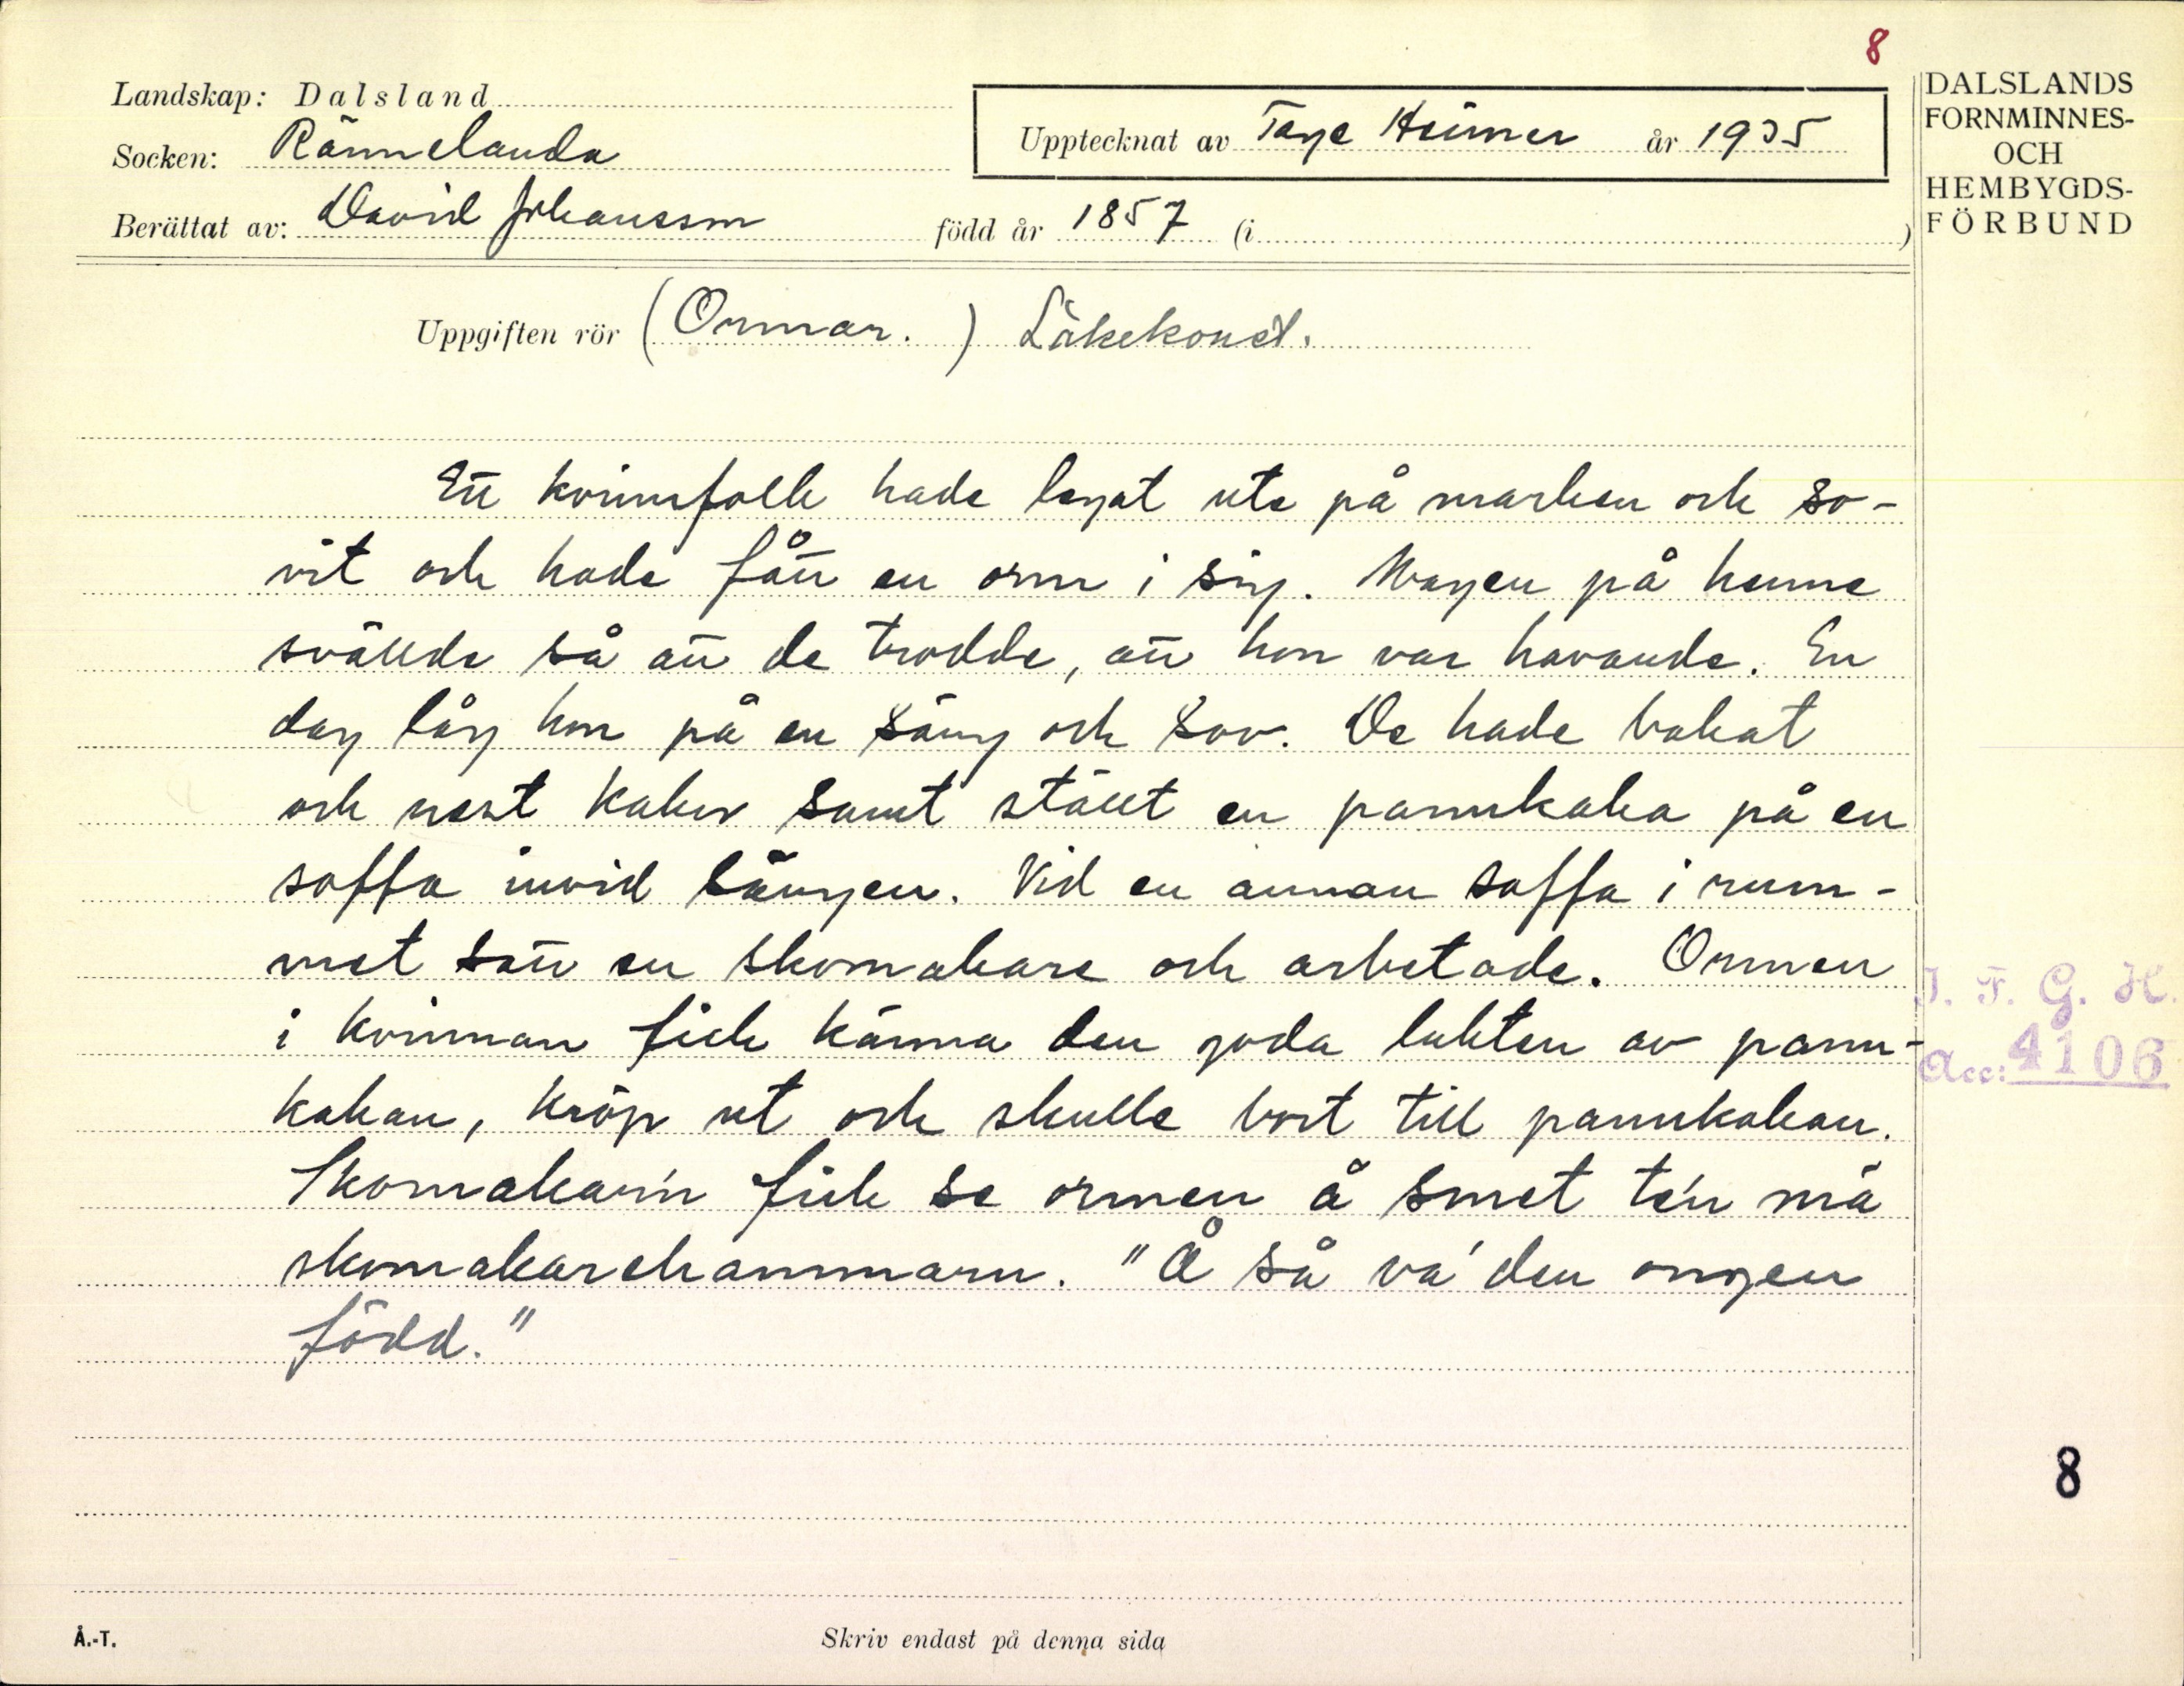 8
Landskap: Dalsland
Socken: Rännelanda
Upptecknat av Tage Heimer år 1935
Berättat av: David Johansson född år 1857 (i )
DALSLANDS
FORNMINNES-
OCH
HEMBYGDS-
FÖRBUND
Uppgiften rör (Ormar.) Läkekonst.
Ett kvinnfolk hade legat ute på marken och so-
vit och hade fått en orm i sig. Magen på henne
svällde så att de trodde, att hon var havande. En
dag låg hon på en säng och sov. De hade bakat
och kakor samt ställt en pannkaka på en
soffa invid sängen. Vid en annan soffa i rum-
met satt en skomakare och arbetade. Ormen
i kvinnan fick känna den goda lukten av pann-
kakan, kröp ut och skulle bort till pannkakan.
Skomakar'n fick se ormen å smet te'n mä
skomakarehammarn. "Å så va' den ongen
född."
I. F. G. H.
Acc: 4106
8
Å.-T.
Skriv endast på denna sida